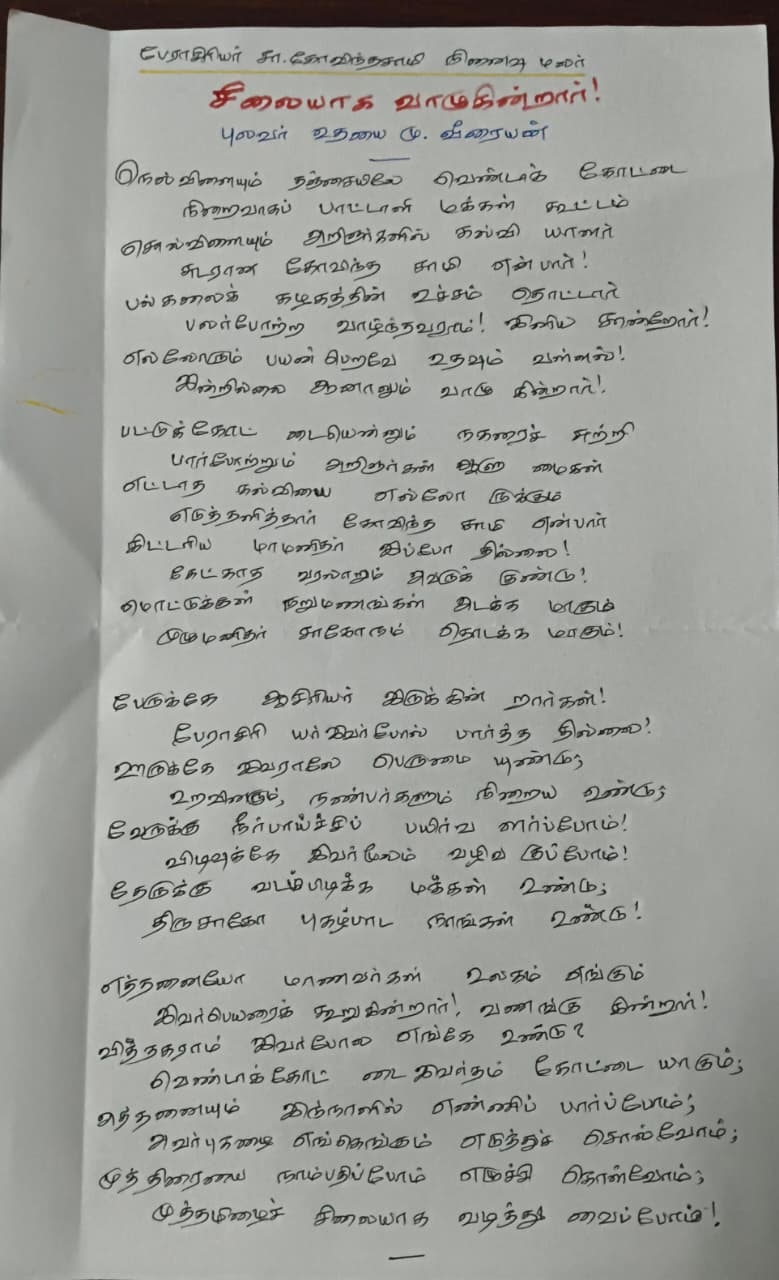 பேராசிரியர் சா.கோவிந்தசாமி நினைவு மலர்
சிலையாக வாழுகின்றார்!
புலவர் உதயை மு. வீரையன்
நெல்விளையும் தஞ்சையிலே வெண்டாக் கோட்டை
நிறைவாகப் பாட்டாளி மக்கள் கூட்டம்
சொல்விளையும் அறிஞர்களில் கல்வி யாளர்
சுடரான கோவிந்த சாமி என்பார்!
பல்கலைக் கழகத்தின் உச்சம் தொட்டார்
பலர்போற்ற வாழ்ந்தவராம்! இனிய சான்றோர்!
எல்லோரும் பயன் பெறவே உதவும் வள்ளல்!
இன்றில்லை ஆனாலும் வாழு கின்றார்!
பட்டுக்கோட் டையென்னும் நகரைச் சுற்றி
பார்போற்றும் அறிஞர்கள் ஆளு மைகள்
எட்டாத கல்வியை எல்லோ ருக்கும்
எடுத்தளித்தார் கோவிந்த சாமி என்பார்
கிட்டரிய மாமனிதர் இப்போ தில்லை!
கேட்காத வரலாறும் அவருக் குண்டு!
மொட்டுக்கள் நறுமணங்கள் அடக்க மாகும்
முழுமனிதர் சாகோவும் தொடக்க மாகும்!
பேருக்கே ஆசிரியர் இருக்கின் றார்கள்!
பேராசிரி யர்இவர்போல் பார்த்த தில்லை!
ஊருக்கே இவராலே பெருமை யுண்டு;
உறவினரும், நண்பர்களும் நிறைய உண்டு;
வேருக்கு நீர்பாய்ச்சிப் பயிர்வ ளர்ப்போம்!
விடிவுக்கே இவர்மூலம் வழிவ குப்போம்!
தேருக்கு வடம்பிடிக்க மக்கள் உண்டு;
திருசாகோ புகழ்பாட நாங்கள் உண்டு!
எத்தனையோ மாணவர்கள் உலகம் எங்கும்
இவர்பெயரைக் கூறுகின்றார்! வணங்கு கின்றார்!
வித்தகராம் இவர்போல எங்கே உண்டு?
வெண்டாக்கோட் டைஇவர்தம் கோட்டை யாகும்;
அத்தனையும் இந்நாளில் எண்ணிப் பார்ப்போம்;
அவர்புகழை எங்கெங்கும் எடுத்துச் சொல்வோம்;
முத்திரையை நாம்பதிப்போம் எழுச்சி கொள்வோம்;
முத்தமிழைச் சிலையாக வடித்து வைப்போம்!